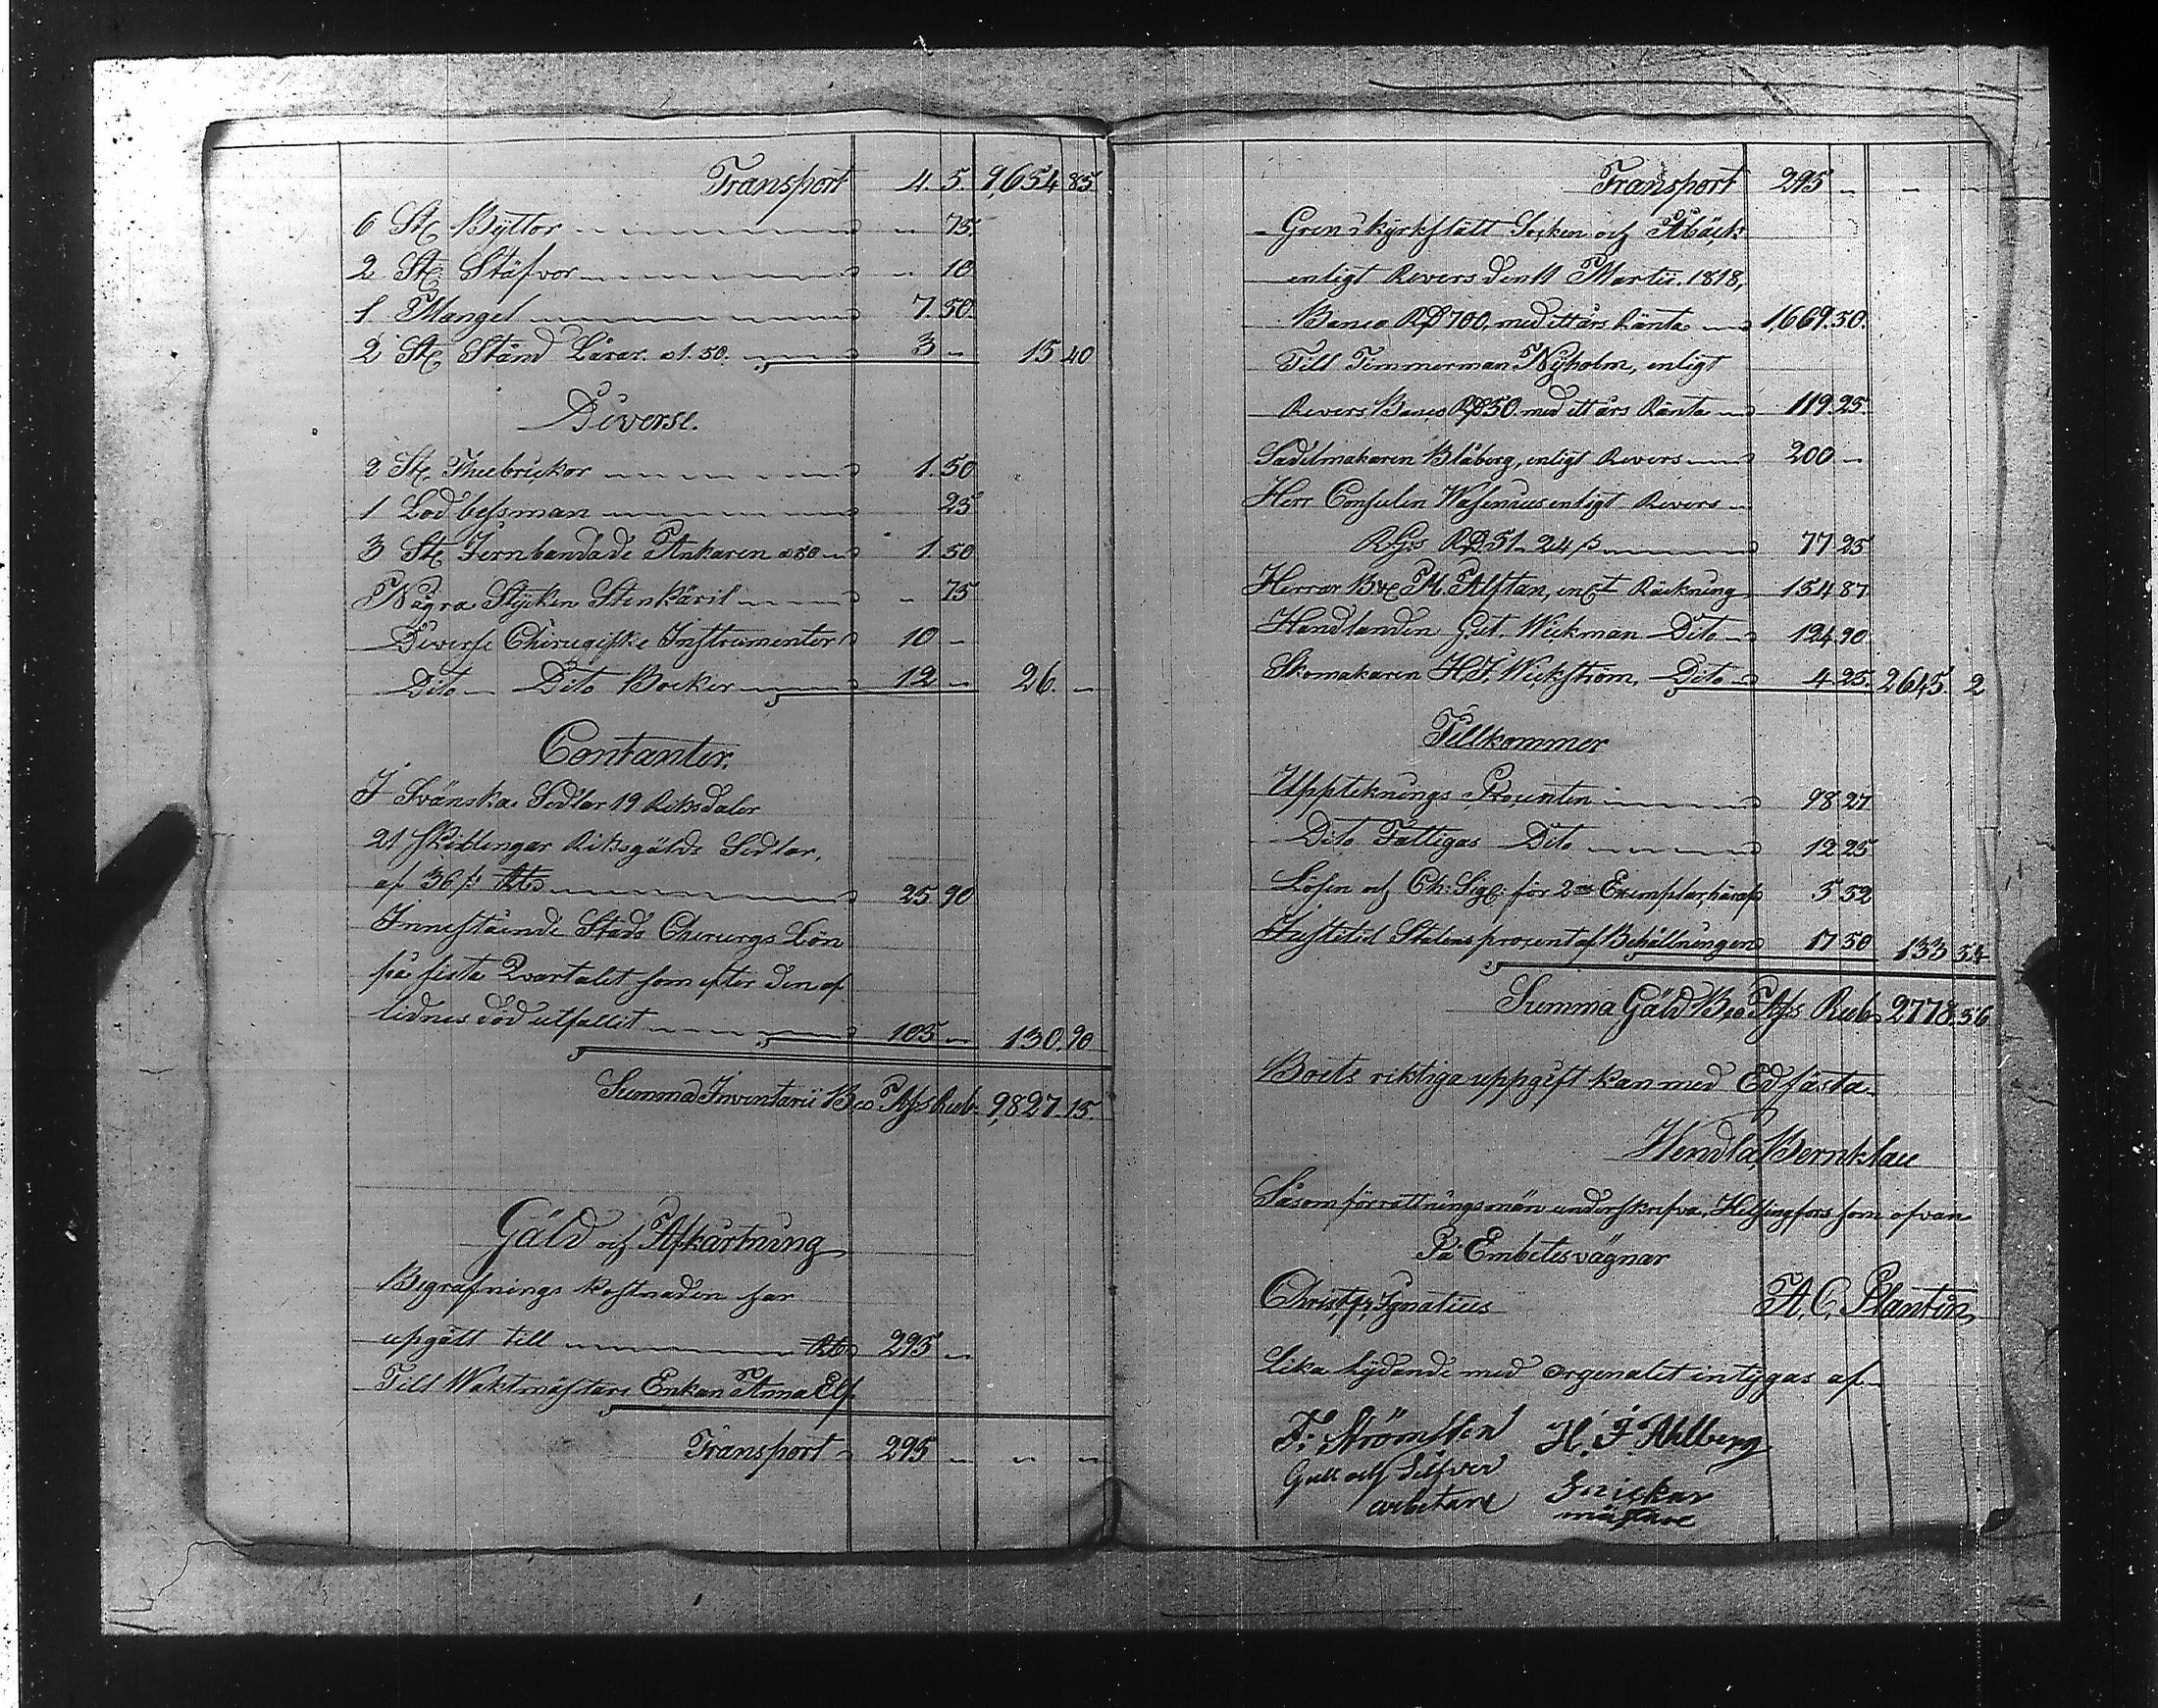 Transport 4. 5. 9,654 85
6 St. Byttor 75.
2 St. Stäfvor 10
1 Mangel 7. 50.
2 St. Stånd Lårar. a 1. 50. 3 15 40
Diverse.
2 St. Theebrickor 1. 50
1 Lod bessman 25
3 St. Jernbandade Ankaren a 50 1. 50
Några Stycken Stenkäril 75
Diverse Chirugiske Instrumenter 10
Dito Dito Böcker 12 26.
Contanter.
I Svänska Sedlar 19 Riksdaler
21 skillingar Riksgälds Sedlar,
af 36 s: 25 90
Innestående Stads Chirurgs Lön
på sista Qvartalet som efter den af
lidnes död utfallit 105 130. 90
Summa Inventarii Bco Ass Rub. 9,827. 15.
Gäld och Afkårtning
Begrafnings kostnaden har
upgått till 295
Till Waktmästare Enkan Anna Elf
Transport 295
Transport 295
Grens kyrkslätt Socken och Åbäck
enligt Revers den 11 Martii. 1818,
Banco RD 700, med ett års Ränta 1,669. 50.
Till Timmerman Nyholm, enligt
Revers Banco RD 50. med ett års Ränta 119. 25.
Sadelmakaren Blåberg, enligt Revers 200
Herr Consulen Wasenius enligt Revers
RGs RD 51. 24 s 77 25
Herrar B. & M. Alftan, enl:t Räckning 154 87
Handlanden Gut. Weckman Dito 124. 90
Skomakaren H. J. Weckström, Dito 4. 25. 2645. 2
Tillkommer
Uppteknings Procenten 98 27
Dito Fattigas Dito 12 25
Lösen och Ch: Sig: för 2ne Exemplar häraf 5 52
Justitiæ Statens procent af Behållningen 17 50 133 54
Summa Gäld Bco Ass Rub 2778. 56
Boets riktiga uppgift kan med Ed fästa
Hendla Bernklau
Såsom förrättningsmän underskrifva, Helsingfors som ofvan
På Embetes vägnar
Christ. fr. Ignatius A. C. Plantin
Lika lydande med orgenalet intygas af
F. Strömsten H. J. Ahlberg
Gull och Silfver Snickar
arbetare mästare